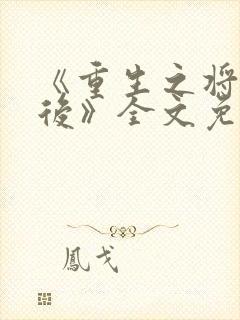 《重生之将
後》全文免
鳳戈